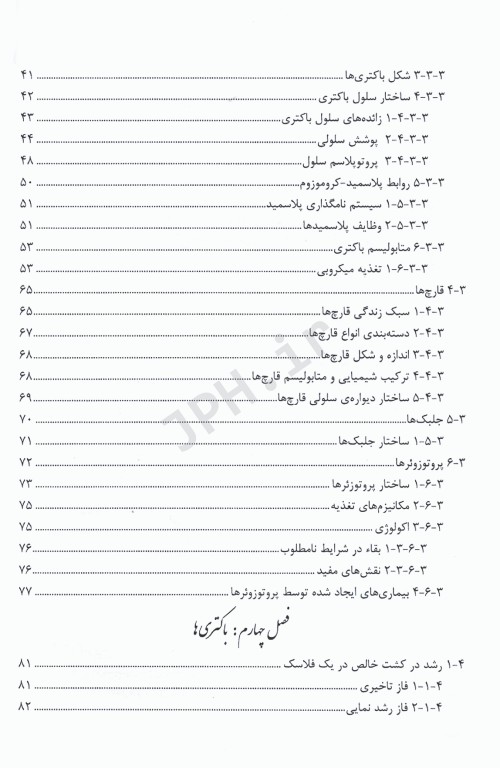 ۳-۳-۳ شکل باکتری‌ها ........ ۴۱
۴-۳-۳ ساختار سلول باکتری ........ ۴۲
۱-۴-۳-۳ زائده‌های سلول باکتری ........ ۴۳
۲-۴-۳-۳ پوشش سلولی ........ ۴۴
۳-۴-۳-۳ پروتوپلاسم سلول ........ ۴۸
۵-۳-۳ روابط پلاسمید-کروموزوم ........ ۵۰
۱-۵-۳-۳ سیستم نامگذاری پلاسمید ........ ۵۱
۲-۵-۳-۳ وظایف پلاسمیدها ........ ۵۱
۶-۳-۳ متابولیسم باکتری ........ ۵۳
۱-۶-۳-۳ تغذیه میکروبی ........ ۵۳
۴-۳ قارچ‌ها ........ ۶۵
۱-۴-۳ سبک زندگی قارچ‌ها ........ ۶۵
۲-۴-۳ دسته‌بندی انواع قارچ‌ها ........ ۶۷
۳-۴-۳ اندازه و شکل قارچ‌ها ........ ۶۸
۴-۴-۳ ترکیب شیمیایی و متابولیسم قارچ‌ها ........ ۶۸
۵-۴-۳ ساختار دیواره‌ی سلولی قارچ‌ها ........ ۶۹
۵-۳ جلبک‌ها ........ ۷۰
۱-۵-۳ ساختار جلبک‌ها ........ ۷۱
۶-۳ پروتوزوئرها ........ ۷۲
۱-۶-۳ ساختار پروتوزئرها ........ ۷۳
۲-۶-۳ مکانیزم‌های تغذیه ........ ۷۵
۳-۶-۳ اکولوژی ........ ۷۵
۱-۳-۶-۳ بقاء در شرایط نامطلوب ........ ۷۶
۲-۳-۶-۳ نقش‌های مفید ........ ۷۶
۴-۶-۳ بیماری‌های ایجاد شده توسط پروتوزوئرها ........ ۷۷
فصل چهارم: باکتری‌ها
۱-۴ رشد در کشت خالص در یک فلاسک ........ ۸۱
۱-۱-۴ فاز تاخیری ........ ۸۱
۲-۱-۴ فاز رشد نمایی ........ ۸۲
JPH.ir